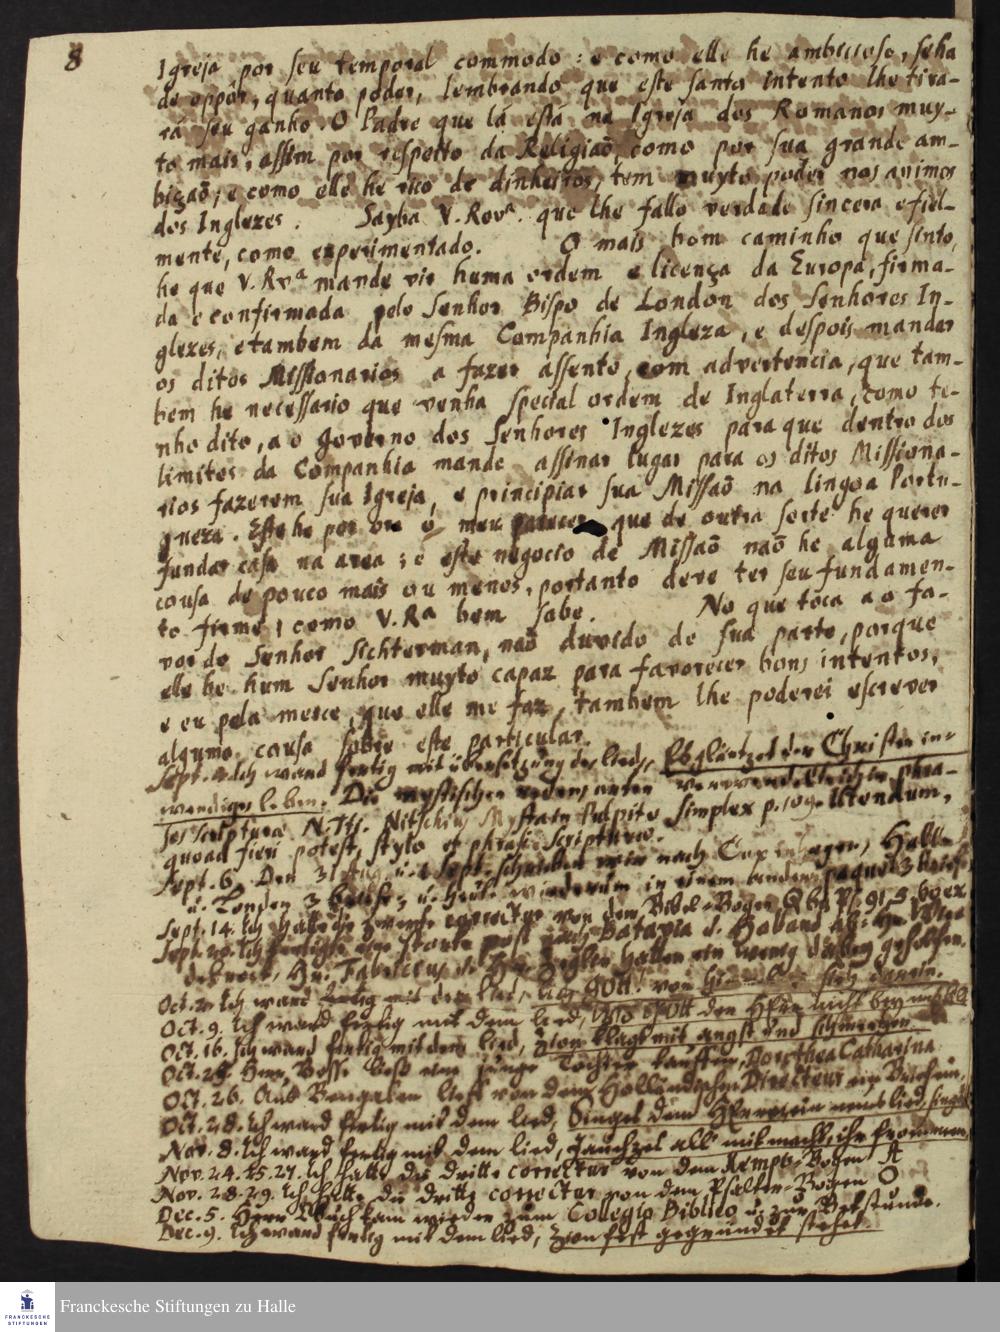 8
Igreja por seu temporal commodo: e como elle he ambicioso, seha
de oppôr, quanto poder, lembrando que este santo intento lhe tira-
rá seu ganho. O Padre que lá está na Igreja dos Romanos muy-
to mais, assim por respeito da Religiaõ, como por sua grande am-
biçaõ; e como elle he rico de dinheiros, tem muyto poder nos animos
dos Inglezes. Sayba V. Rovª. que lhe fallo verdade sincera efiel-
mente, como experimentado. O mais bom caminho que sinto,
he que V. Rvª mande vir huma ordem e licença da Europa, firma-
da e confirmada pelo Senhor Bispo de London dos Senhores In-
glezes, etambem da mesma Companhia Ingleza, e despois mandar
os ditos Missionarios a fazer assento, com advertencia, que tam-
bem he necessario que venha special ordem de Inglaterra, como te-
nho dito, ao governo dos Senhores Inglezes paraque dentro dos
limites da Companhia mande assinar lugar para os ditos Missiona-
rios fazerem sua Igreja, e principiar sua Missaõ na lingoa Portu-
gueza. Este he por ora o meu parecer que de outra sorte he querer
fundar casa na area; e este negocio de Missaõ naõ he alguma
cousa de pouco mais ou menos, portanto deve ter seu fundamen-
to firme, como V. Rª bem sabe. No que toca ao fa-
vor do Senhor Sichterman, naõ duvido de sua parte, porque
elle he hum Senhor muyto capaz para favorecer bons intentos,
e eu pela merce, que elle me faz, tambem lhe poderei escrever
alguma cousa sobre este particular.
Sept. 4. Ich ward fertig mit übersetzung des lieds, Es gläntzet der Christen in-
wendiges leben. Die mystischen redens arten verwandelte ich in phra-
ses scriptura N. Tti. Nitschii Mystain Simplex p. 109. Utendum,
quoad fieri potest, stylo et phrasi Scripturae.
Sept. 6. Den 31 Aug. u. 2 Sept. schrieben wir nach Copenhagen, Halle
u. London 3 briefe; u. heute wiederum in einem paquet 3 briefe
Sept. 14. Ich hatte die zweyte correctur von dem Bibel-Bogen Qbq Ps. 91,5. 60 ex
Sept. 20. Ich post nach Batavia
Hr. Fabricius ein wenig geholfen.
Oct. 2. Ich ward fertig mit dem lied, Ach GOtt! von Himmel sieh darein.
Oct. 9. Ich ward fertig mit dem lied, Wo GOtt der HErr nicht bey uns hält
Oct. 16. Ich ward fertig mit dem lied, Zion klagt mit angst und schmertzen.
Oct. 24. Herr Bosse ließ eine junge Tochter tauffen, Dorothea Catharina.
Oct. 26. Aus Bengalen lief von dem Holländischen Directeur ein Briefein.
Oct. 28. Ich ward fertig mit dem lied, Singet dem HErrn ein neues lied, singet
Nov. 8. Ich ward fertig mit dem lied, Jauchzet all mit macht, ihr frommen,
Nov. 24. 25. 27. Ich hatte die dritte correctur von dem Kempis-Bogen A
Nov. 28. 29. Ich hatte die dritte correctur von dem Psalter-Bogen O
Dec. 5. Herr kam wieder zum Collegio Biblico u. zur Betstunde.
Dec. 9. Ich ward fertig mit dem lied, Zion fest gegründet stehet.
FRANCKESCHE
STIFTUNGEN
Franckesche Stiftungen zu Halle